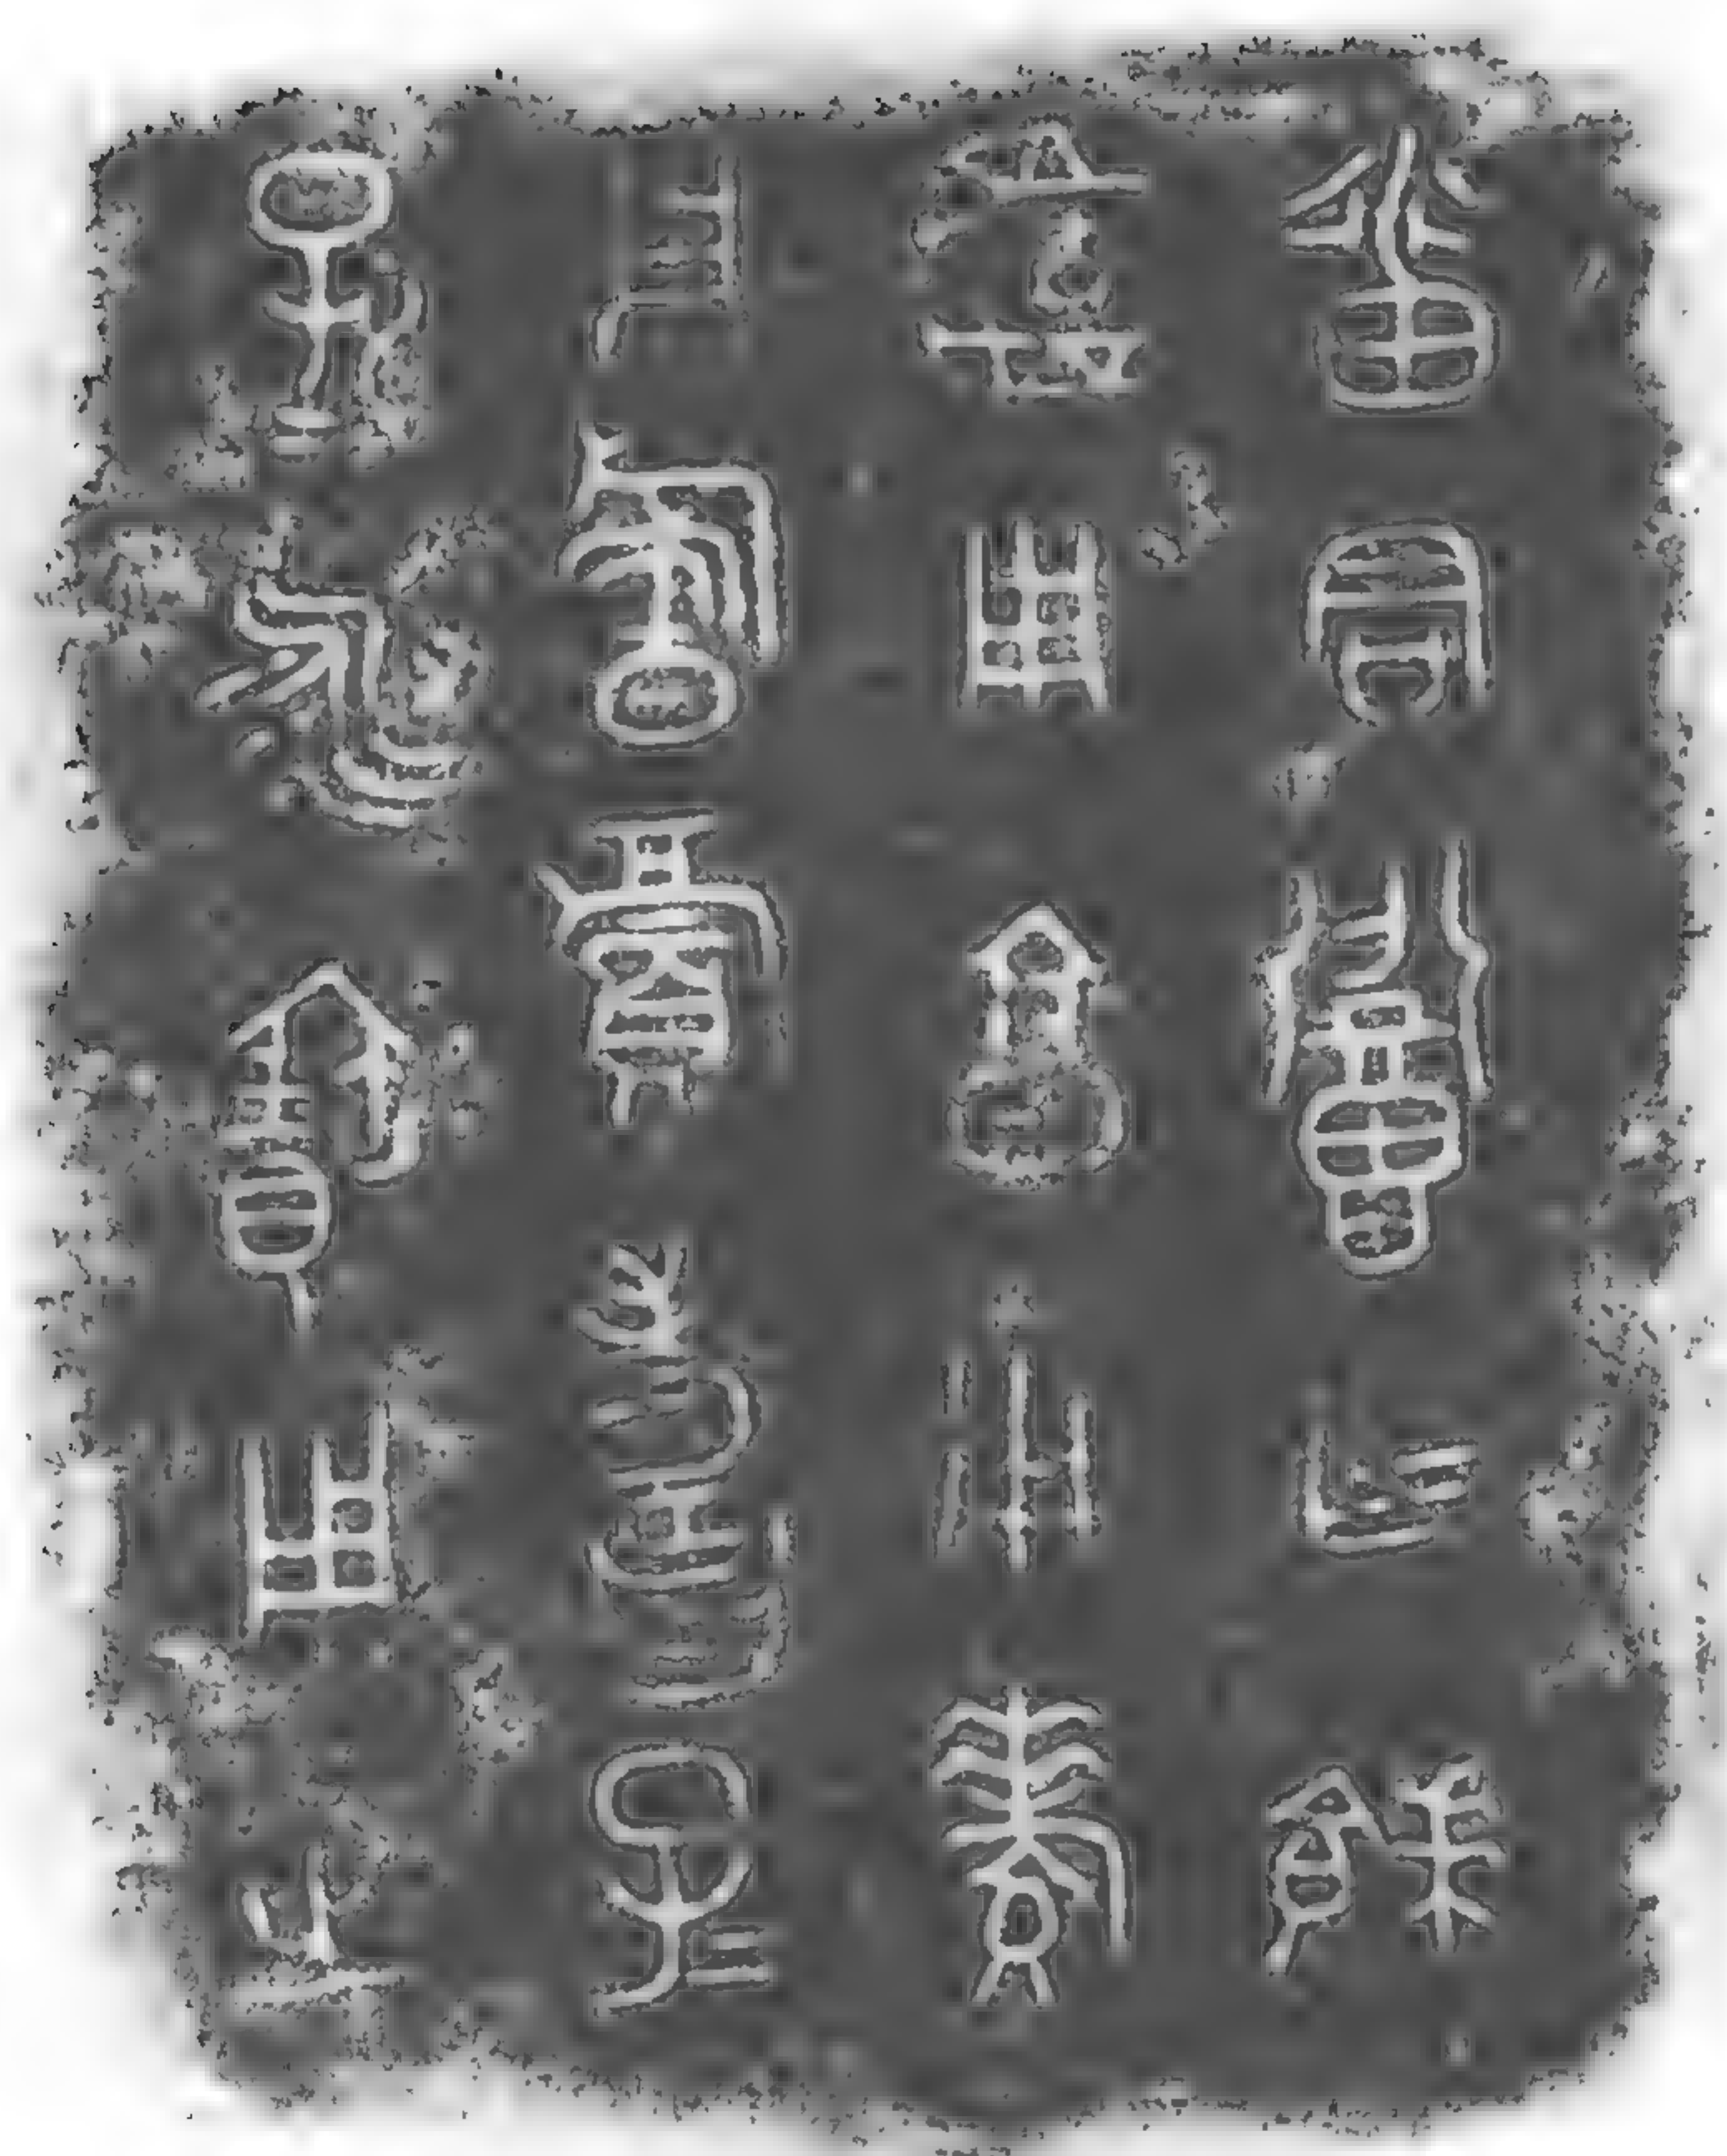 番君召乍餴
簠用享用孝
用祈眉壽子
孫永寶用之